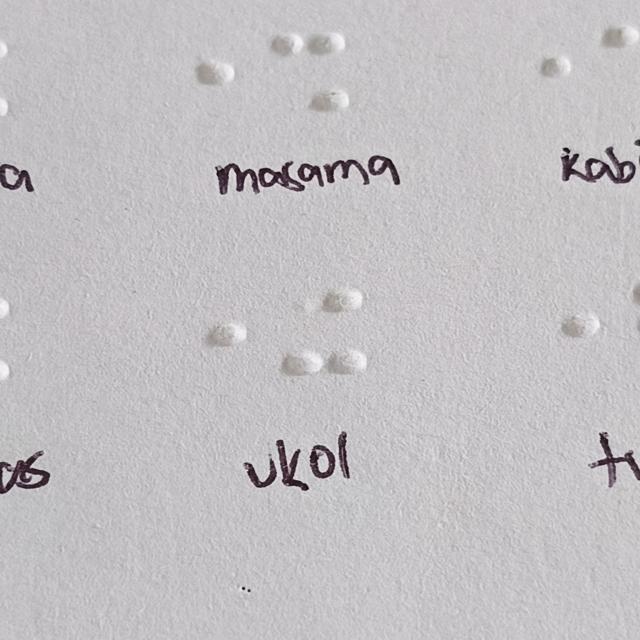 a masama kab
ukol